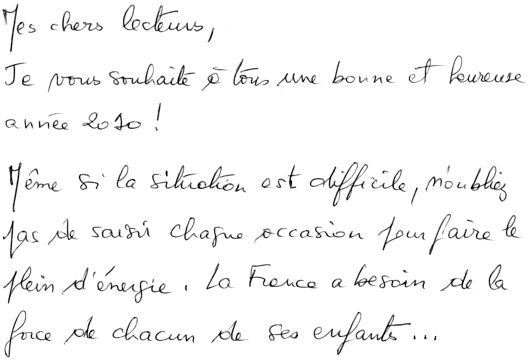 Mes chers lecteurs,
Je vous souhaite à tous une bonne et heureuse
année 2010 !
Même si la situation est difficile, n'oubliez
pas de saisir chaque occasion pour faire le
plein d'énergie. La France a besoin de la
force de chacun de ses enfants...